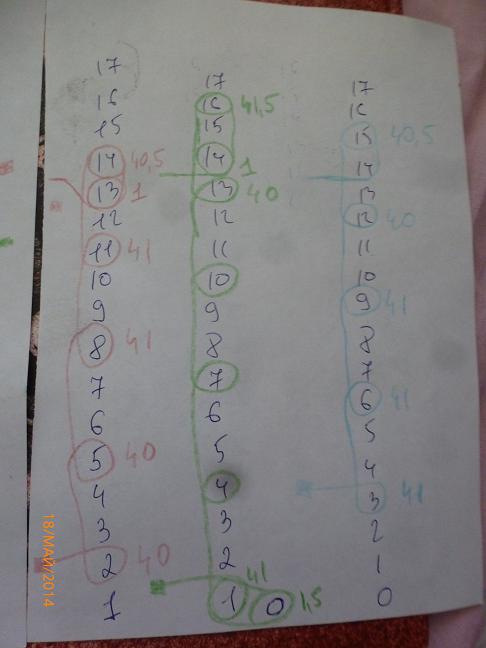 17
16
15
14 40,5
13 1
12
11 41
10
9
8 41
7
6
5 40
4
3
2 40
1
17
16 41,5
15
14 1
13 40
12
11
10
9
8
7
6
5
4
3
2
41
1 0 1,5
17
16
15 40,5
14
13
12 40
11
10
9 41
8
7
6 41
5
4
3 41
2
1
0
18/МАЙ/2014